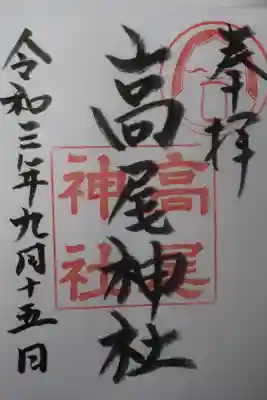 奉拝
高尾神社
高尾
神社
令和三年九月十五日